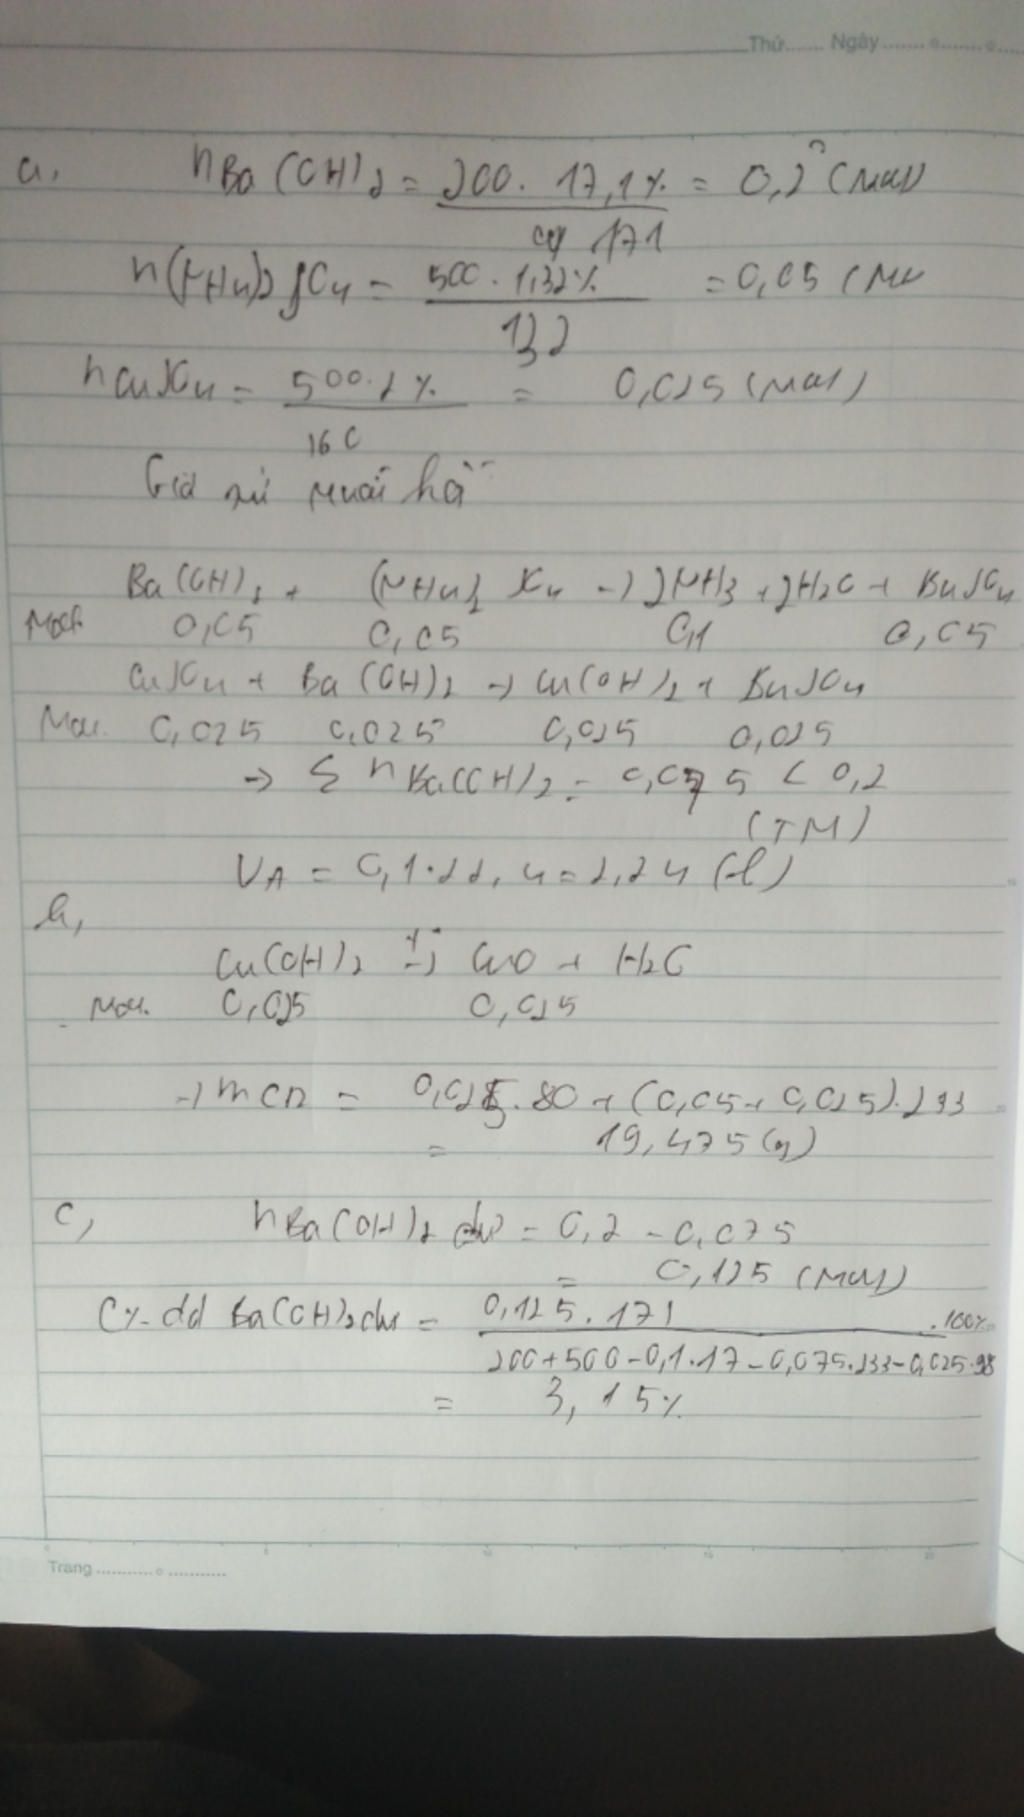 Thứ....... Ngày........o........o....
a, nBa(OH)2 = 200. 17,1% = 0,2 (mol)
171
n(NH4)2SO4 = 500. 1,32% = 0,05 (mo
132
nCuSO4 = 500.2% = 0,025 (mol)
160
Giả sử muối hết
Ba(OH)2 + (NH4)2SO4 -> 2NH3 + 2H2O + BaSO4
Mol. 0,05 0,05 0,1 0,05
CuSO4 + Ba(OH)2 -> Cu(OH)2 + BaSO4
Mol. 0,025 0,025 0,025 0,025
-> Σ nBa(OH)2 = 0,075 < 0,2
(TM)
VA = 0,1.22,4 = 2,24 (l)
b,
Cu(OH)2 t° -> CuO + H2O
Mol. 0,025 0,025
-> mCR = 0,025.80 + (0,05 + 0,025).233
= 19,475 (g)
c, nBa(OH)2 dư = 0,2 - 0,075
= 0,125 (mol)
C% dd Ba(OH)2 dư = 0,125.171 .100%
200+500-0,1.17-0,075.233-0,025.98
= 3,15%
Trang ...........o...........